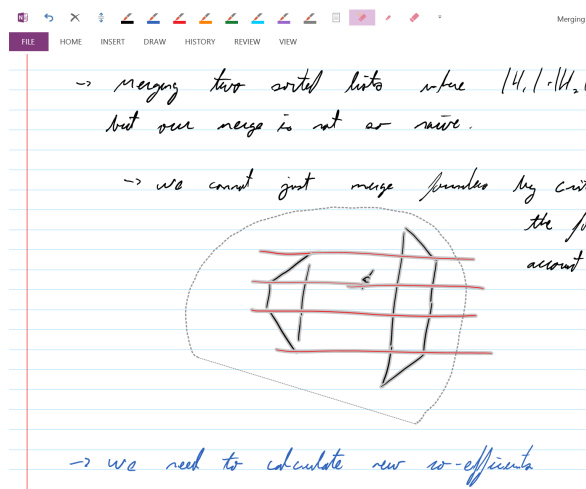 Merging
FILE HOME INSERT DRAW HISTORY REVIEW VIEW
-> Merging two sorted lists where |H,|·|H₂|
but our merge is not so naive.
-> we cannot just merge by
the
account
-> we need to calculate new co-efficients